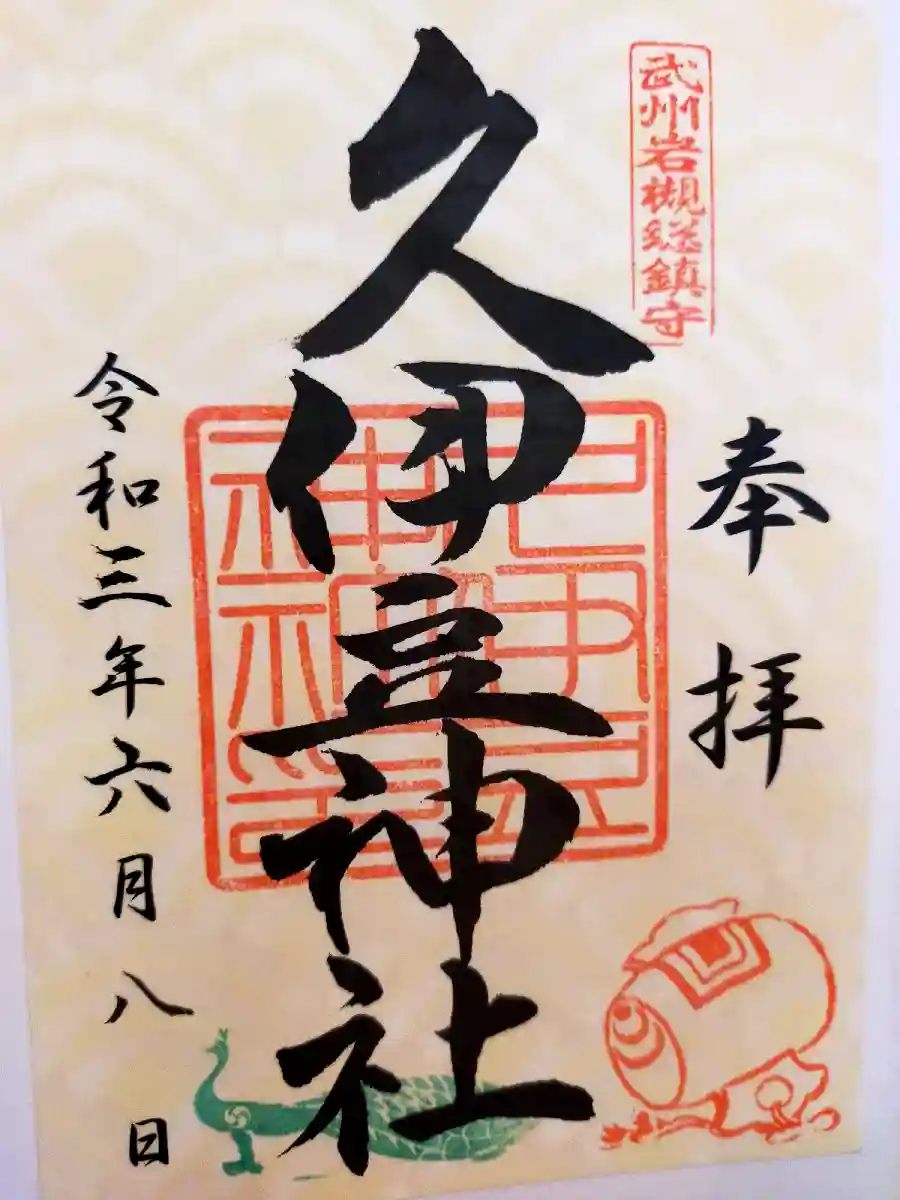 武州岩槻総鎮守
奉拝
久伊豆神社
令和三年六月八日